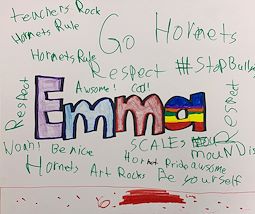 teachers Rock
Hornets Rule
Go Hornets
Hornets Rule
Respect #StopBully
Awsome! Cool!
Respect
Emma
Respect
Woah! Be nice
SCALES
mouNDis
Hornet Pride awsome
Hornets Art Rocks Be yourself